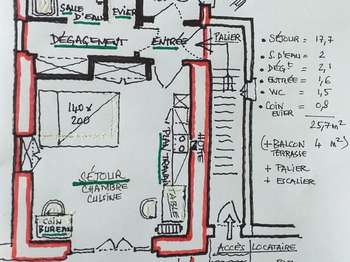 SALLE
D'EAU
EVIER
DÉGAGEMENT
ENTRÉE
PALIER
140x
200
PLAN TRAVAIL
HOTTE
SÉJOUR
CHAMBRE
CUISINE
TABLE
COIN
BUREAU
ACCÈS LOCATAIRE
• SÉJOUR = 17,7
• S. D'EAU = 2
• DÉGT = 2,1
• ENTRÉE = 1,6
• WC = 1,5
• COIN = 0,8
EVIER
25,7 m²
(+ BALCON 4 m²)
TERRASSE
+ PALIER
+ ESCALIER